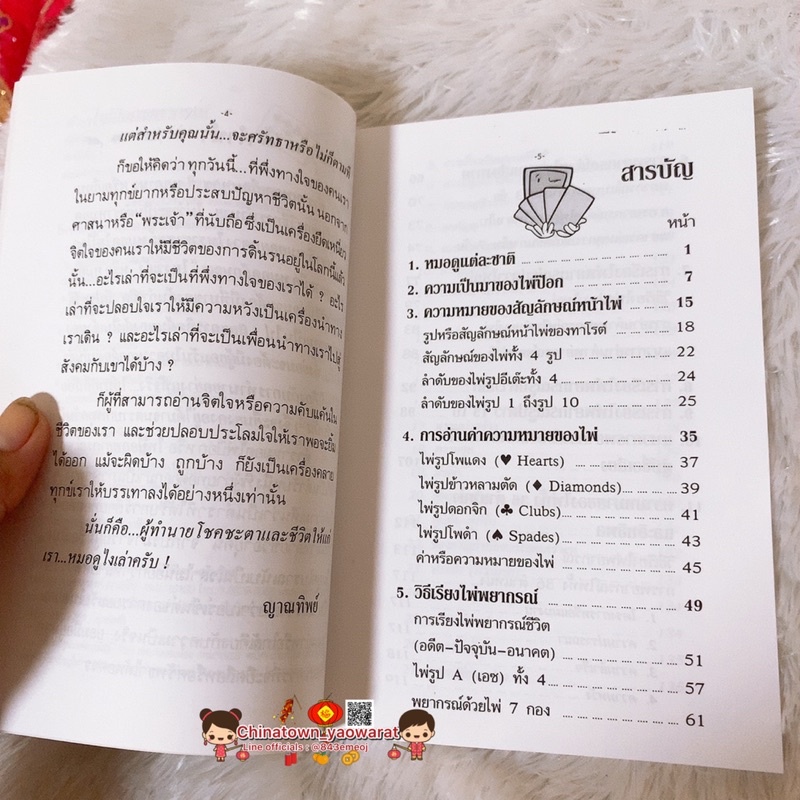 -4-
แต่สำหรับคุณนั้น...จะศรัทธาหรือไม่ก็ตามที
ก็ขอให้คิดว่า ทุกวันนี้...ที่พึ่งทางใจของคนเรา
ในยามทุกข์ยากหรือประสบปัญหาชีวิตนั้น นอกจาก
ศาสนาหรือ “พระเจ้า” ที่นับถือ ซึ่งเป็นเครื่องยึดเหนี่ยว
จิตใจของคนเราให้มีชีวิตของการดิ้นรนอยู่ในโลกนี้แล้ว
นั้น...อะไรเล่าที่จะเป็นที่พึ่งทางใจของเราได้ ? อะไร
เล่าที่จะปลอบใจเราให้มีความหวังเป็นเครื่องนำทาง
เราเดิน ? และอะไรเล่าที่จะเป็นเพื่อนนำทางเราไปสู่
สังคมกับเขาได้บ้าง ?
ก็ผู้ที่สามารถอ่านจิตใจหรือความคับแค้นใน
ชีวิตของเรา และช่วยปลอบประโลมใจให้เราพอจะยิ้ม
ได้ออก แม้จะผิดบ้าง ถูกบ้าง ก็ยังเป็นเครื่องคลาย
ทุกข์เราให้บรรเทาลงได้อย่างหนึ่งเท่านั้น
นั่นก็คือ...ผู้ทำนายโชคชะตาและชีวิตให้แก่
เรา...หมอดูไงเล่าครับ !
ญาณทิพย์
-5-
สารบัญ
หน้า
1. หมอดูแต่ละชาติ 1
2. ความเป็นมาของไพ่ป๊อก 7
3. ความหมายของสัญลักษณ์หน้าไพ่ 15
รูปหรือสัญลักษณ์หน้าไพ่ของทาโรต์ 18
สัญลักษณ์ของไพ่ทั้ง 4 รูป 22
ลำดับของไพ่รูปอีเต๊ะทั้ง 4 24
ลำดับของไพ่รูป 1 ถึงรูป 10 25
4. การอ่านค่าความหมายของไพ่ 35
ไพ่รูปโพแดง (♥ Hearts) 37
ไพ่รูปข้าวหลามตัด (♦ Diamonds) 39
ไพ่รูปดอกจิก (♣ Clubs) 41
ไพ่รูปโพดำ (♠ Spades) 43
ค่าหรือความหมายของไพ่ 45
5. วิธีเรียงไพ่พยากรณ์ 49
การเรียงไพ่พยากรณ์ชีวิต
(อดีต-ปัจจุบัน-อนาคต) 51
ไพ่รูป A (เอซ) ทั้ง 4 57
พยากรณ์ด้วยไพ่ 7 กอง 61
Chinatown_yaowarat
Line officials : @843emeoj